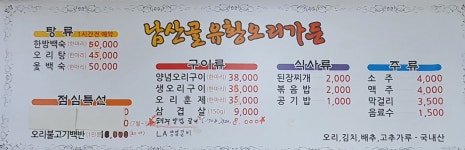 남산골유황오리가든
탕 류 1시간전 예약
한방백숙 (한마리) 50,000
오 리 탕 (한마리) 45,000
옻 백 숙 (한마리) 50,000
점심특설
오리불고기백반
구이류
양념오리구이 (한마리) 38,000
생오리구이 (한마리) 38,000
오 리 훈 제 (한마리) 35,000
삼 겹 살 (150g) 9,000
8,000
LA
식사류
된장찌개 2,000
볶음밥 2,000
공 기 밥 1,000
주 류
소 주 4,000
맥 주 4,000
막걸리 3,500
음료수 1,500
오리,김치,배추,고추가루 - 국내산